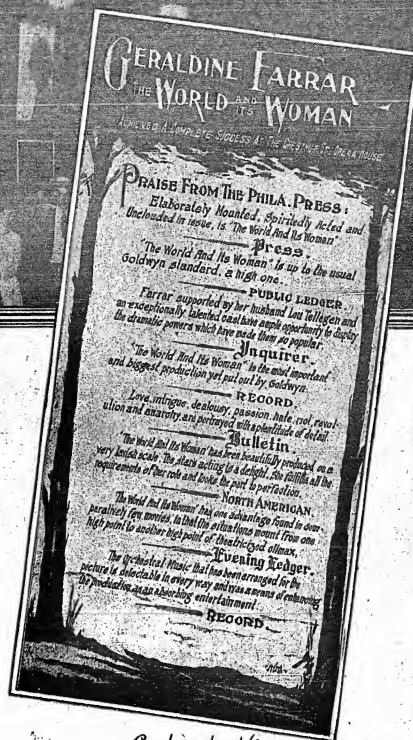 GERALDINE FARRAR
THE WORLD AND ITS WOMAN
ACHIEVED A COMPLETE SUCCESS AT THE CHESTNUT ST. OPERA HOUSE
PRAISE FROM THE PHILA. PRESS:
Elaborately Mounted, Spiritedly Acted and
Unclouded in issue, is "The World And Its Woman"
Press.
"The World And Its Woman" is up to the usual
Goldwyn standard, a high one.
PUBLIC LEDGER
Farrar supported by her husband Lou Tellegen and
an exceptionally talented cast have ample opportunity to display
the dramatic powers which have made them so popular.
Inquirer.
"The World And Its Woman" is the most important
and biggest production yet put out by Goldwyn.
RECORD.
Love, intrigue, jealousy, passion, hate, riot, revol-
ution and anarchy, are portrayed with a plentitude of detail.
Bulletin.
The World And Its Woman has been beautifully produced on a
very lavish scale. The stars acting is a delight. She fulfills all the
requirements of her role and looks the part to perfection.
NORTH AMERICAN.
"The World And Its Woman" has one advantage found in com-
paratively few movies, in that the situations mount from one
high point to another high point of theatricized climax.
Evening Ledger.
The orchestral music that has been arranged for the
picture is delectable in every way and was a means of enhancing
the production as an absorbing entertainment.
RECORD.